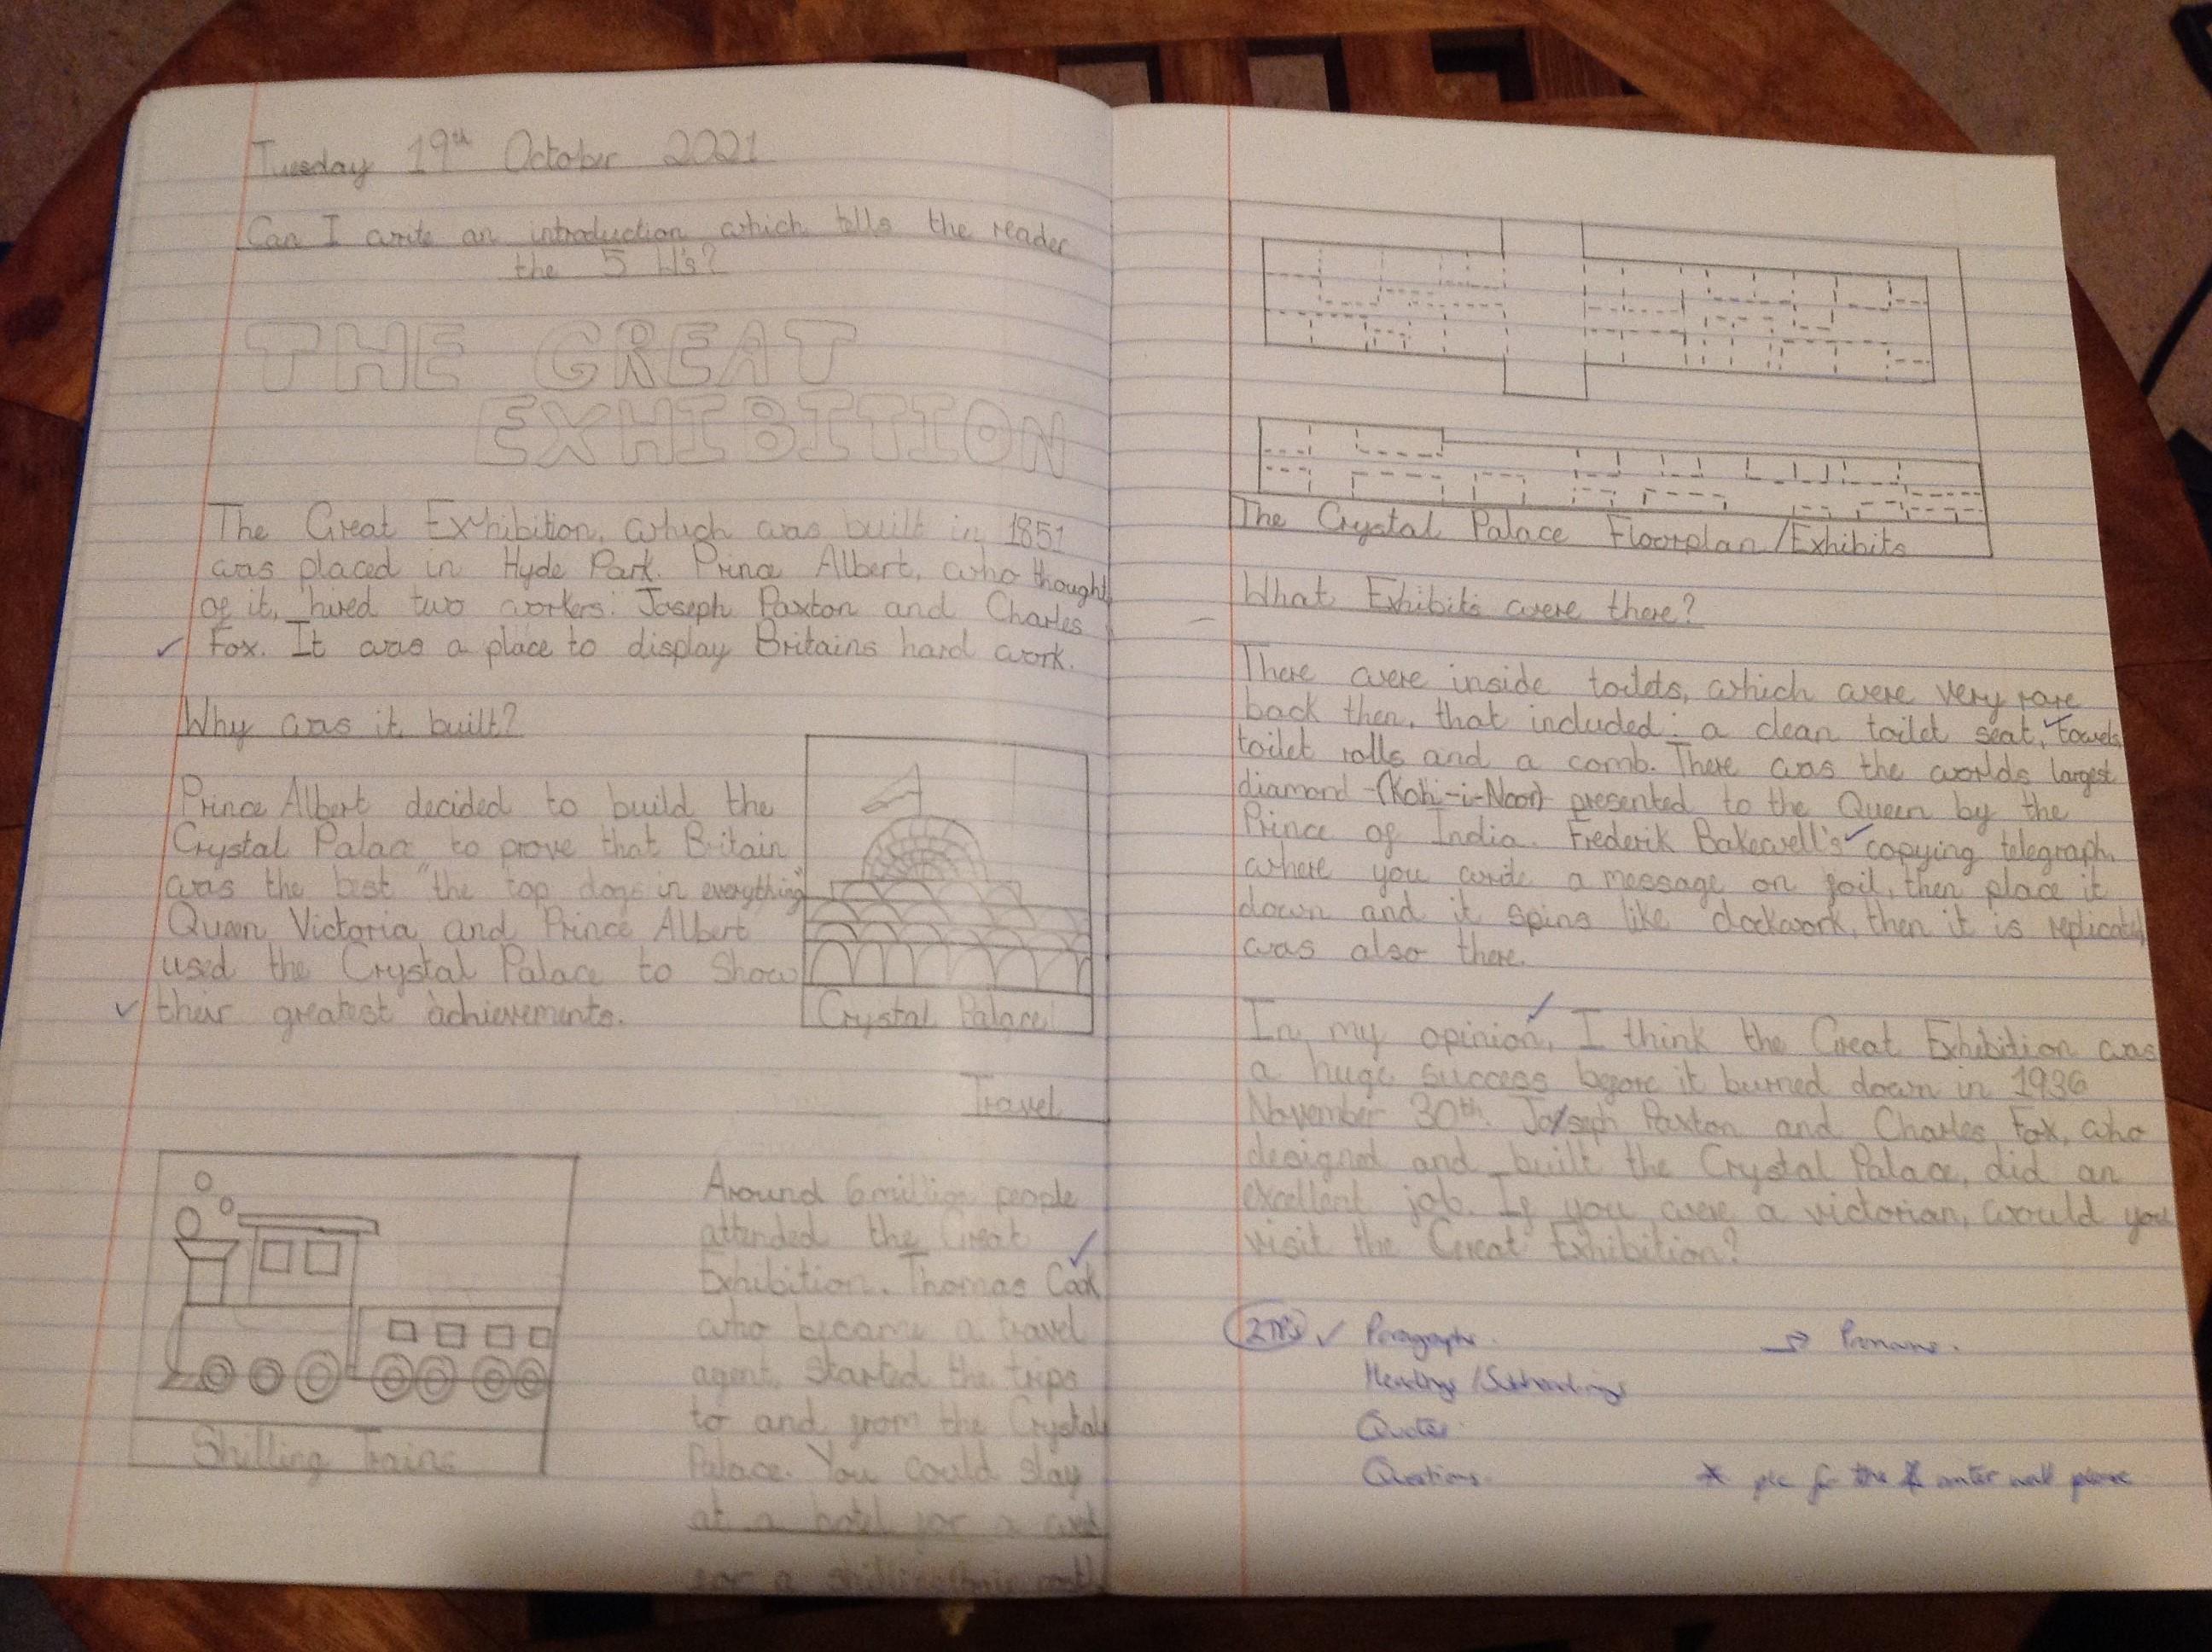 Tuesday 19th October 2021
Can I write an introduction which tells the reader
the 5 W's?
THE GREAT
EXHIBITION
The Great Exhibition, which was built in 1851
was placed in Hyde Park. Prince Albert, who thought
of it, hired two workers: Joseph Paxton and Charles
Fox. It was a place to display Britains hard work.
Why was it built?
Prince Albert decided to build the
Crystal Palace to prove that Britain
was the best "the top dogs in everything"
Queen Victoria and Prince Albert
used the Crystal Palace to show
their greatest achievements.
Crystal Palace
Travel
Around 6 million people
attended the Great
Exhibition. Thomas Cook
who became a travel
agent, started the trips
to and from the Crystal
Palace. You could stay
at a hotel for a week
for a shilling
Shilling Trains
The Crystal Palace Floorplan/Exhibits
What Exhibits were there?
There were inside toilets, which were very rare
back then, that included: a clean toilet seat, towels,
toilet rolls and a comb. There was the worlds largest
diamond -(Kohi-i-Noor)- presented to the Queen by the
Prince of India. Frederik Bakewell's copying telegraph,
where you write a message on foil, then place it
down and it spins like clockwork, then it is replicated,
was also there.
In my opinion, I think the Great Exhibition was
a huge success before it burned down in 1936
November 30th. Joseph Paxton and Charles Fox, who
designed and built the Crystal Palace, did an
excellent job. If you were a victorian, would you
visit the Great Exhibition?
Paragraphs.
→ Pronouns.
Headings/Subheadings
Quotes.
Questions.
* pic for the writer wall please